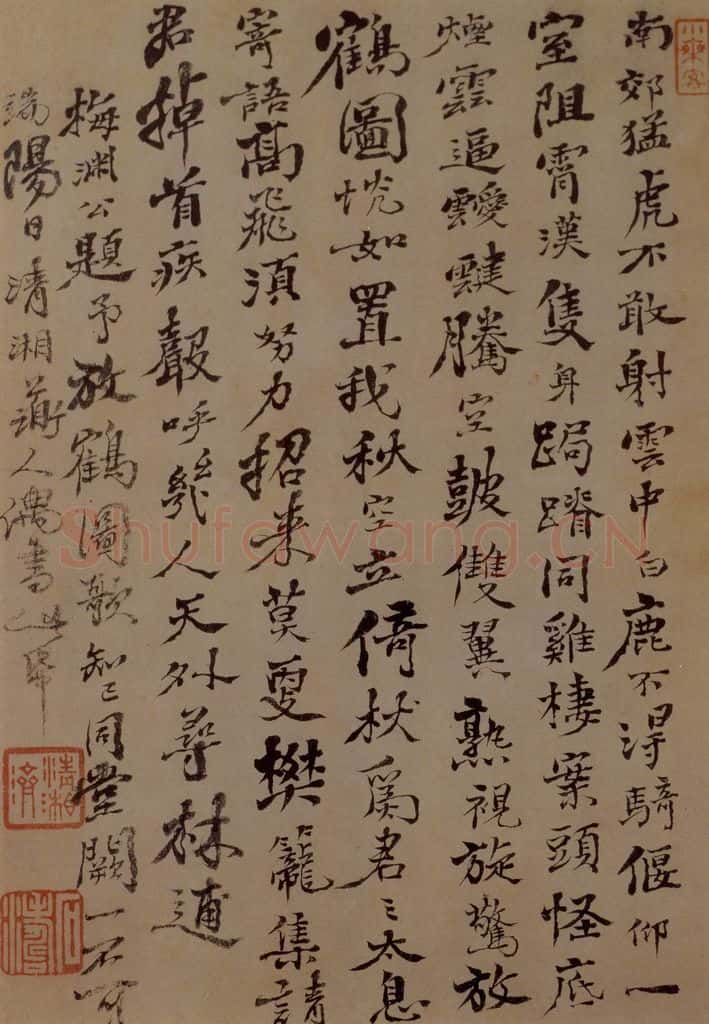 南郊猛虎不敢射雲中白鹿不得騎偃仰一
室阻霄漢隻身跼蹐同雞棲案頭怪底
煙雲逼靉靆騰空鼓雙翼熟視旋驚放
鶴圖恍如置我秋空立倚杖為君々太息
寄語高飛須努力招来莫更樊籠集請
君掉首疾聲呼幾人天外尋林逋
梅淵公題予放鶴圖歌知己同堂闕一不可
端陽日清湘人偶書此紙
小乘客
清湘濟
石濤
Shufawang.CN